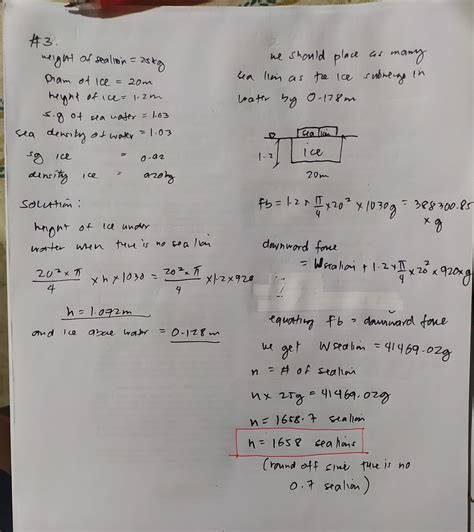 #3.
weight of sealion = 25kg
Diam of ice = 20m
height of ice = 1.2m
s.g of sea water = 1.03
sea density of water = 1.03
sg ice = 0.92
density ice = 920kg
Solution:
height of ice under
water when there is no sea lion
20² x π / 4 x h x 1030 = 20² x π / 4 x 1.2 x 920
h = 1.072m
and ice above water = 0.128m
we should place as many
sea lion as the ice submerg in
water by 0.128m
sea lion
ice
1.2
20m
Fb = 1.2 x π/4 x 20² x 1030g = 388300.85 x g
downward force
= Wsealion + 1.2 x π/4 x 20² x 920 x g
equating Fb = downward force
we get Wsealion = 41469.02g
n = # of sealion
n x 25g = 41469.02g
n = 1658.7 sealion
n = 1658 sealions
(round off since there is no
0.7 sealion)